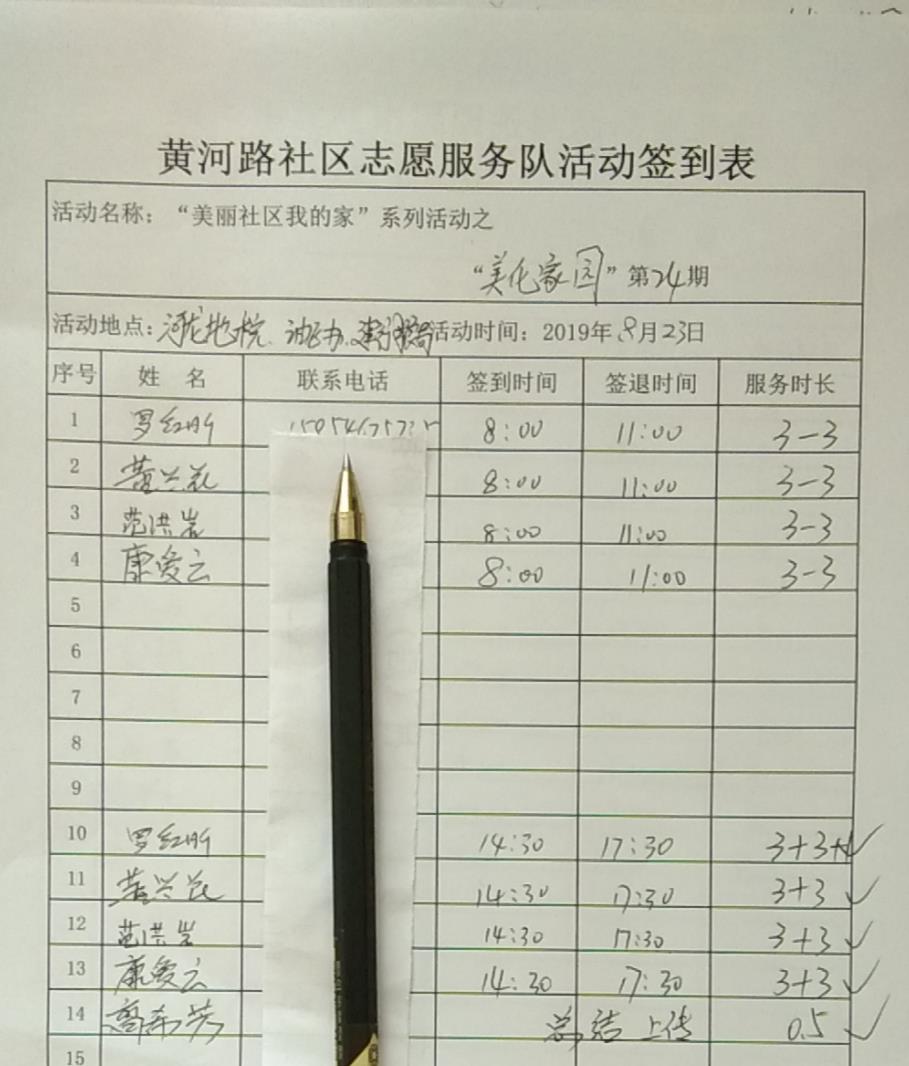 黄河路社区志愿服务队活动签到表
活动名称：“美丽社区我的家”系列活动之
“美化家园”第24期
活动地点： 活动时间：2019年8月23日
序号 姓 名 联系电话 签到时间 签退时间 服务时长
1 罗红 8:00 11:00 3-3
2 黄兴花 8:00 11:00 3-3
3 范洪岩 8:00 11:00 3-3
4 康爱云 8:00 11:00 3-3
5
6
7
8
9
10 罗红 14:30 17:30 3+3+
11 黄兴花 14:30 17:30 3+3 ✓
12 范洪岩 14:30 17:30 3+3 ✓
13 康爱云 14:30 17:30 3+3 ✓
14 总结上传 0.5 ✓
15